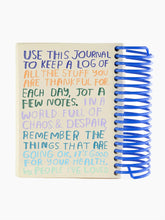 USE THIS JOURNAL
TO KEEP A LOG OF
ALL THE STUFF YOU
ARE THANKFUL FOR
EACH DAY, JOT A
FEW NOTES. IN A
WORLD FULL OF
CHAOS & DESPAIR
REMEMBER THE
THINGS THAT ARE
GOING OK, IT'S GOOD
FOR YOUR HEALTH.
PEOPLE I'VE LOVED